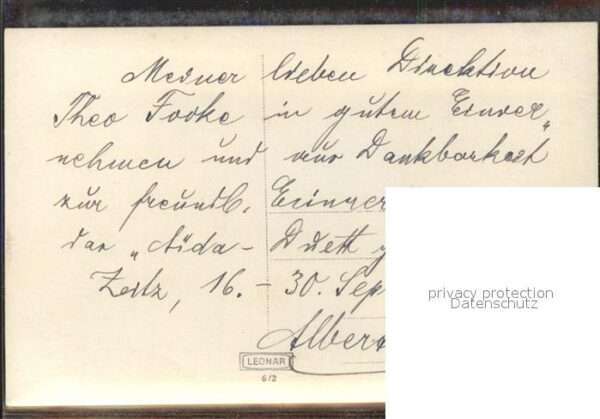 Meiner lieben Direktion
Theo Focke in gutem Einver„
nehmen und aus Dankbarkeit
zur freundl. Erinner
das „Aida- Duett
Zeitz, 16. - 30. Sep
Albert
privacy protection
Datenschutz
LEONAR
6/2